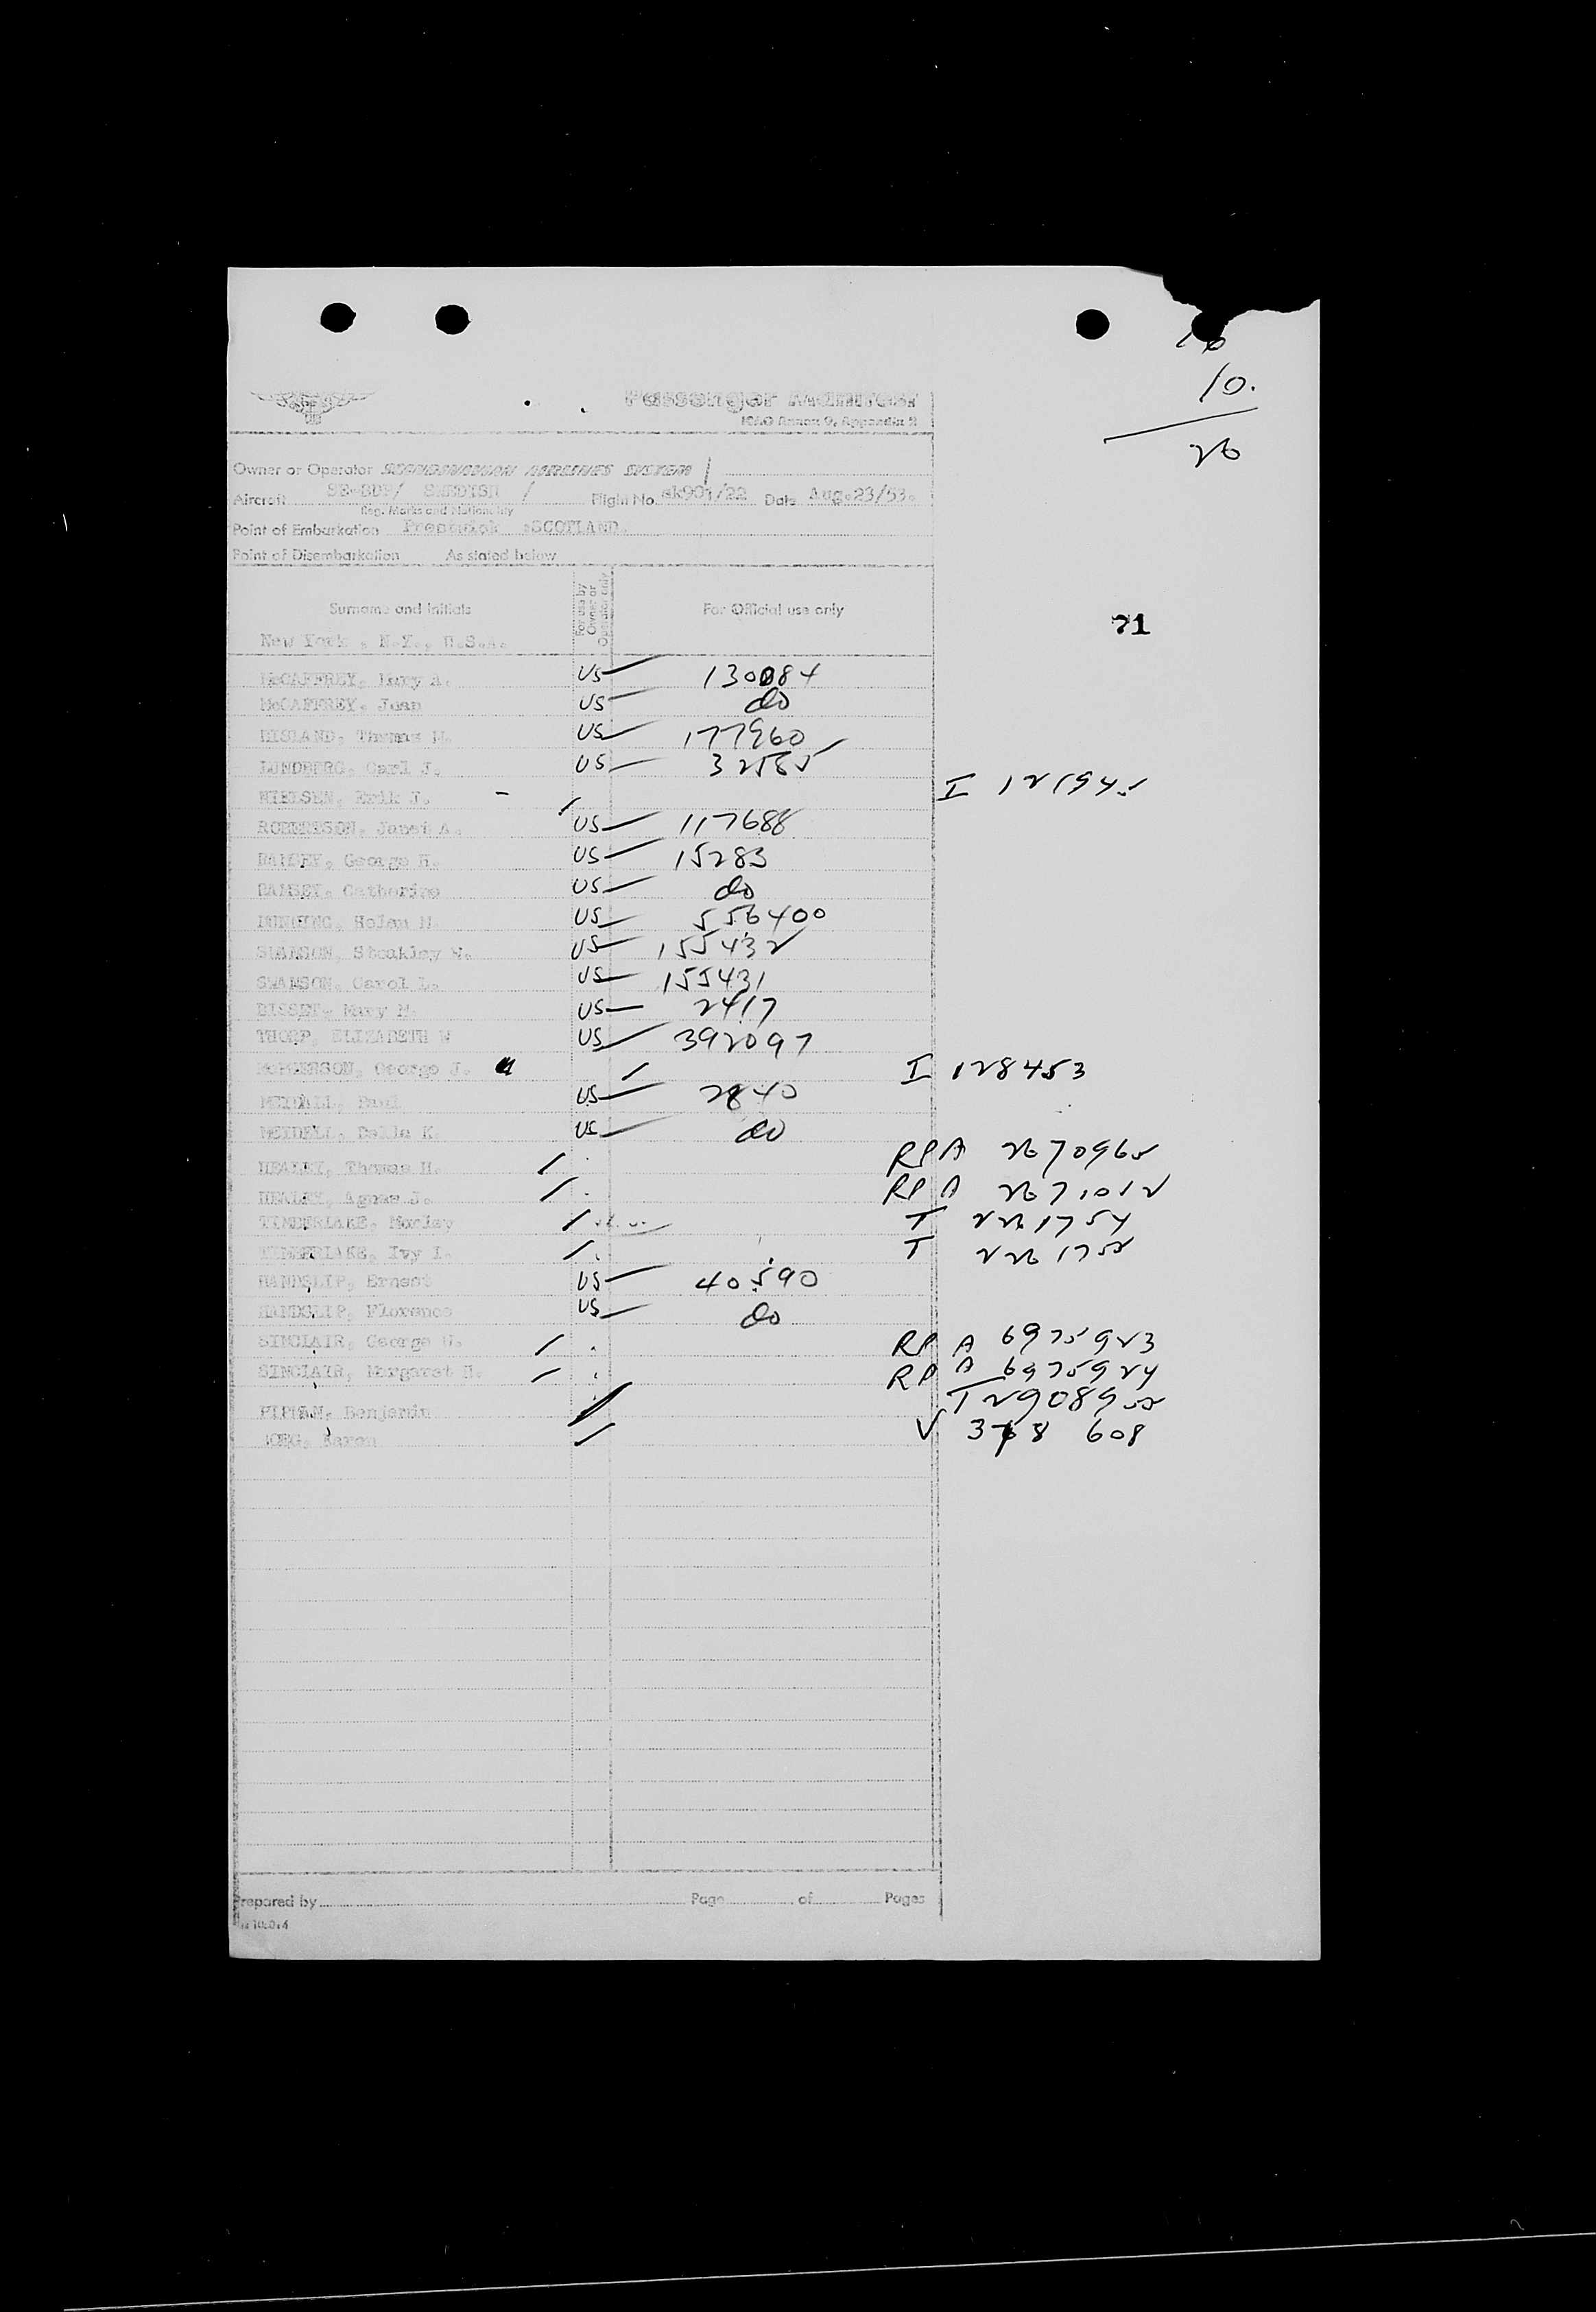 10.
26
Passenger Manifest
ICAO Annex 9, Appendix 2
Owner or Operator SCANDINAVIAN AIRLINES SYSTEM
Aircraft SE-BDP/ SWEDISH / Flight No. sk901/22 Date Aug.23/53.
Reg. Marks and Nationality
Point of Embarkation Prestwick SCOTLAND.
Point of Disembarkation As stated below
Surname and initials For use by Owner or Operator only For Official use only
71
New York , N.Y., U.S.A.
McCAFFREY, Lucy A. US 130084
McCAFFREY, Joan US do
Thomas M. US 177960
LUNDBERG, Carl J. US 32585
NIELSEN, Erik J. - I 121945
ROBERTSON, Janet A. US 117688
George H. US 15283
Catherine US do
Helen M. US 556400
SWANSON, W. US 155432
SWANSON, Carol L. US 155431
BISSET, Mary M. US 2417
THORP, ELIZABETH W US 392097
George J. I 128453
Paul US 2840
MEIDELL, K. US do
HEALEY, Thomas H. RPA 2670965
HEALEY, Agnes J. RPA 2671012
TIMBERLAKE, Morley T 221754
TIMBERLAKE, Ivy I. T
HANDSLIP, Ernest US 40590
HANDSLIP, Florence US do
SINCLAIR, George RPA 6975923
SINCLAIR, Margaret H. RPA 6975924
Benjamin T
Karen V 608
Prepared by Page of Pages